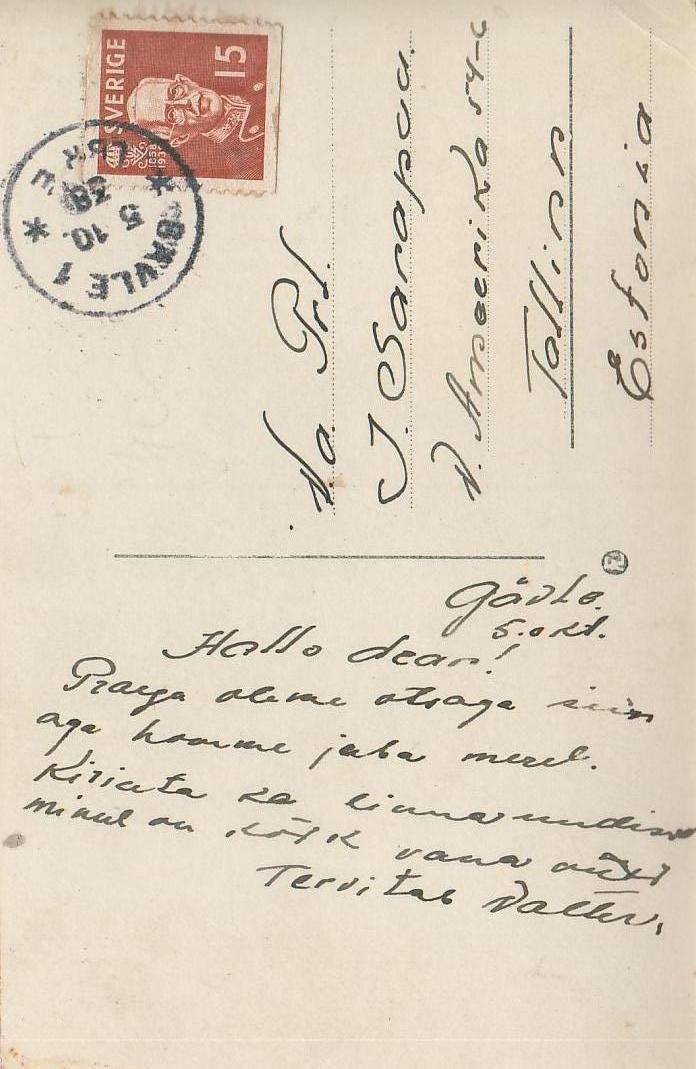 SVERIGE
15
1858
1938
GÄVLE 1
5 10.
38
Prl.
J. Sarapuu.
V. Ameerika 54-6
Tallinn
Estonia
Gävle.
5. okt.
Hallo dear!
Praega oleme otsaga siin
aga homme juba merel.
Kirjuta ka linna uudised
minul on kõik vana viisi
Tervitab Valter.